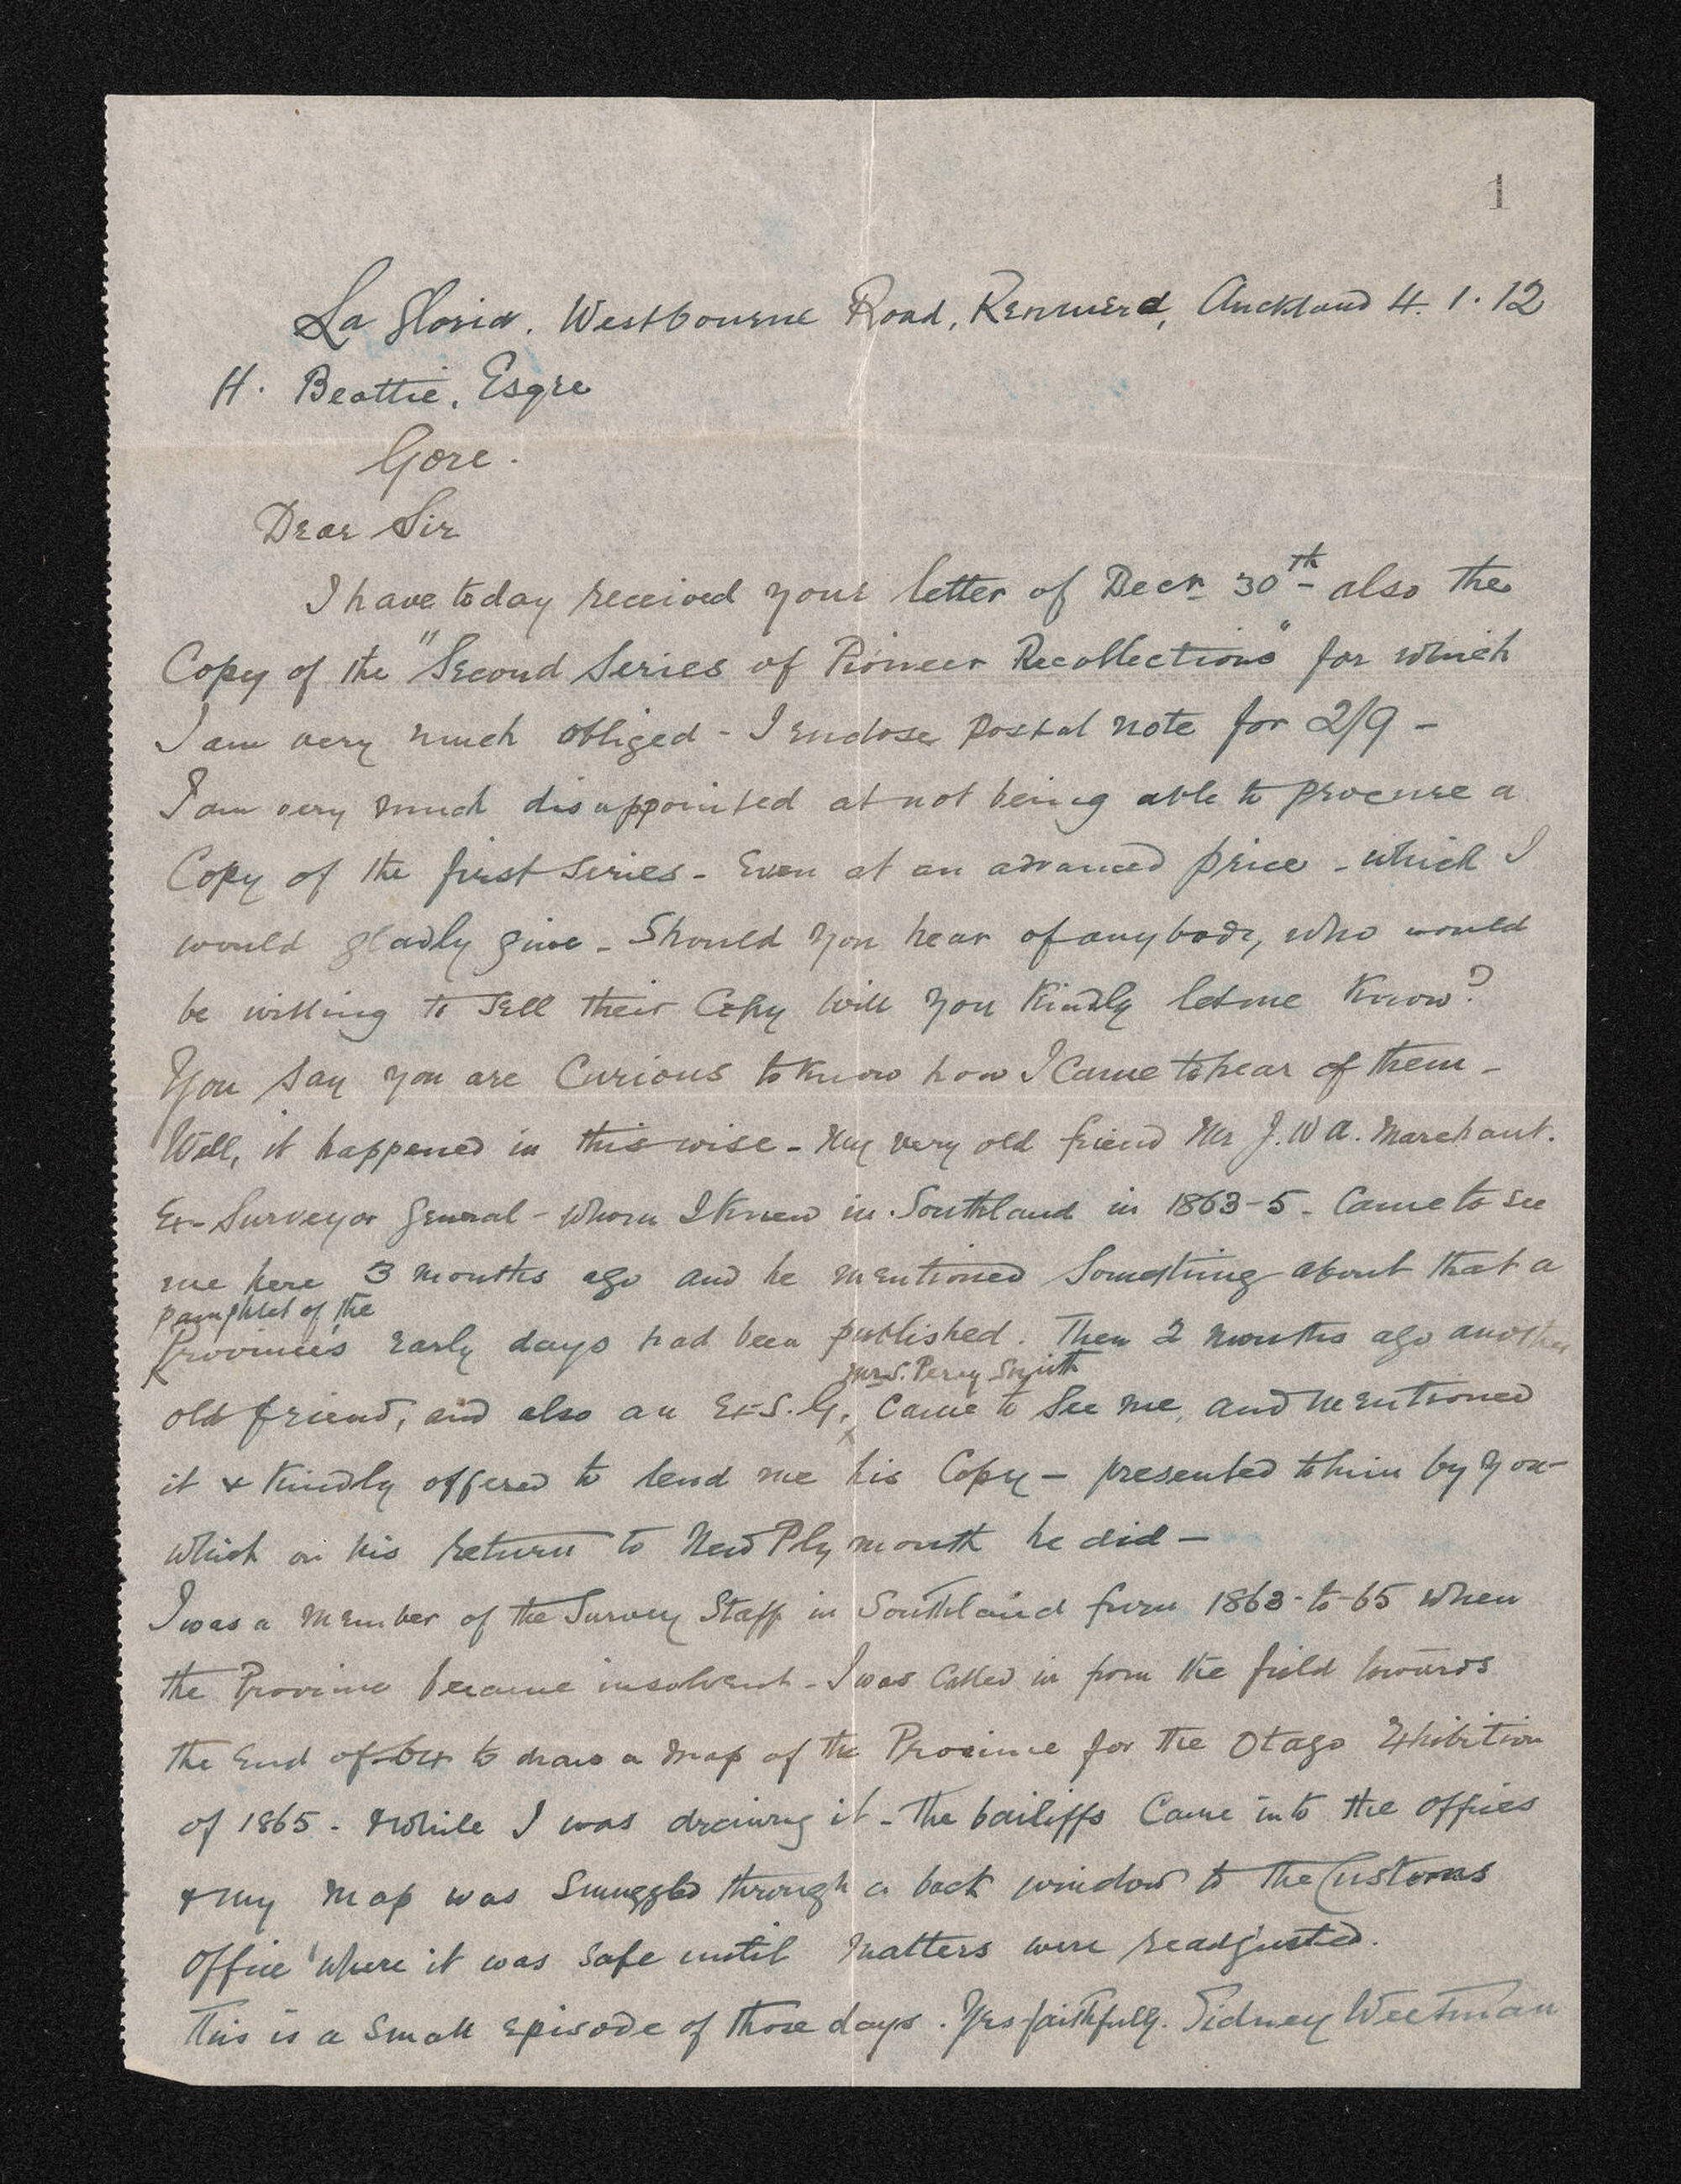 1
La Gloria. Westbourne Road, Remuera, Auckland 4.1.12
H. Beattie, Esqre
Gore.
Dear Sir
I have today received your letter of Decr 30th also the
Copy of the "Second Series of Pioneer Recollections" for which
I am very much obliged - I enclose postal note for 2/9 -
I am very much disappointed at not being able to procure a
Copy of the first series - Even at an advanced price - which I
would gladly give - Should you hear of anybody, who would
be willing to sell their Copy will you kindly let me know?
You say you are Curious to know how I came to hear of them -
Well, it happened in this wise - My very old friend Mr J. W A. Marchant.
Ex-Surveyor General - whom I knew in Southland in 1863-5 - Came to see
me here 3 months ago and he mentioned something about that a
pamphlet of the
Province's early days had been published. Then 2 months ago another
Mr S. Percy Smith
old friend, and also an Ex-S.G, came to see me, and mentioned
it & kindly offered to lend me his Copy - presented to him by you -
which on his return to New Plymouth he did -
I was a member of the Survey Staff in Southland from 1863-to-65 when
the Province became insolvent - I was called in from the field towards
the End of 64 to draw a map of the Province for the Otago Exhibition
of 1865 - While I was drawing it - the bailiffs Came into the offices
& my map was smuggled through a back window to the Customs
Office where it was safe until matters were readjusted.
This is a small episode of those days. Yrs faithfully. Sidney Weetman